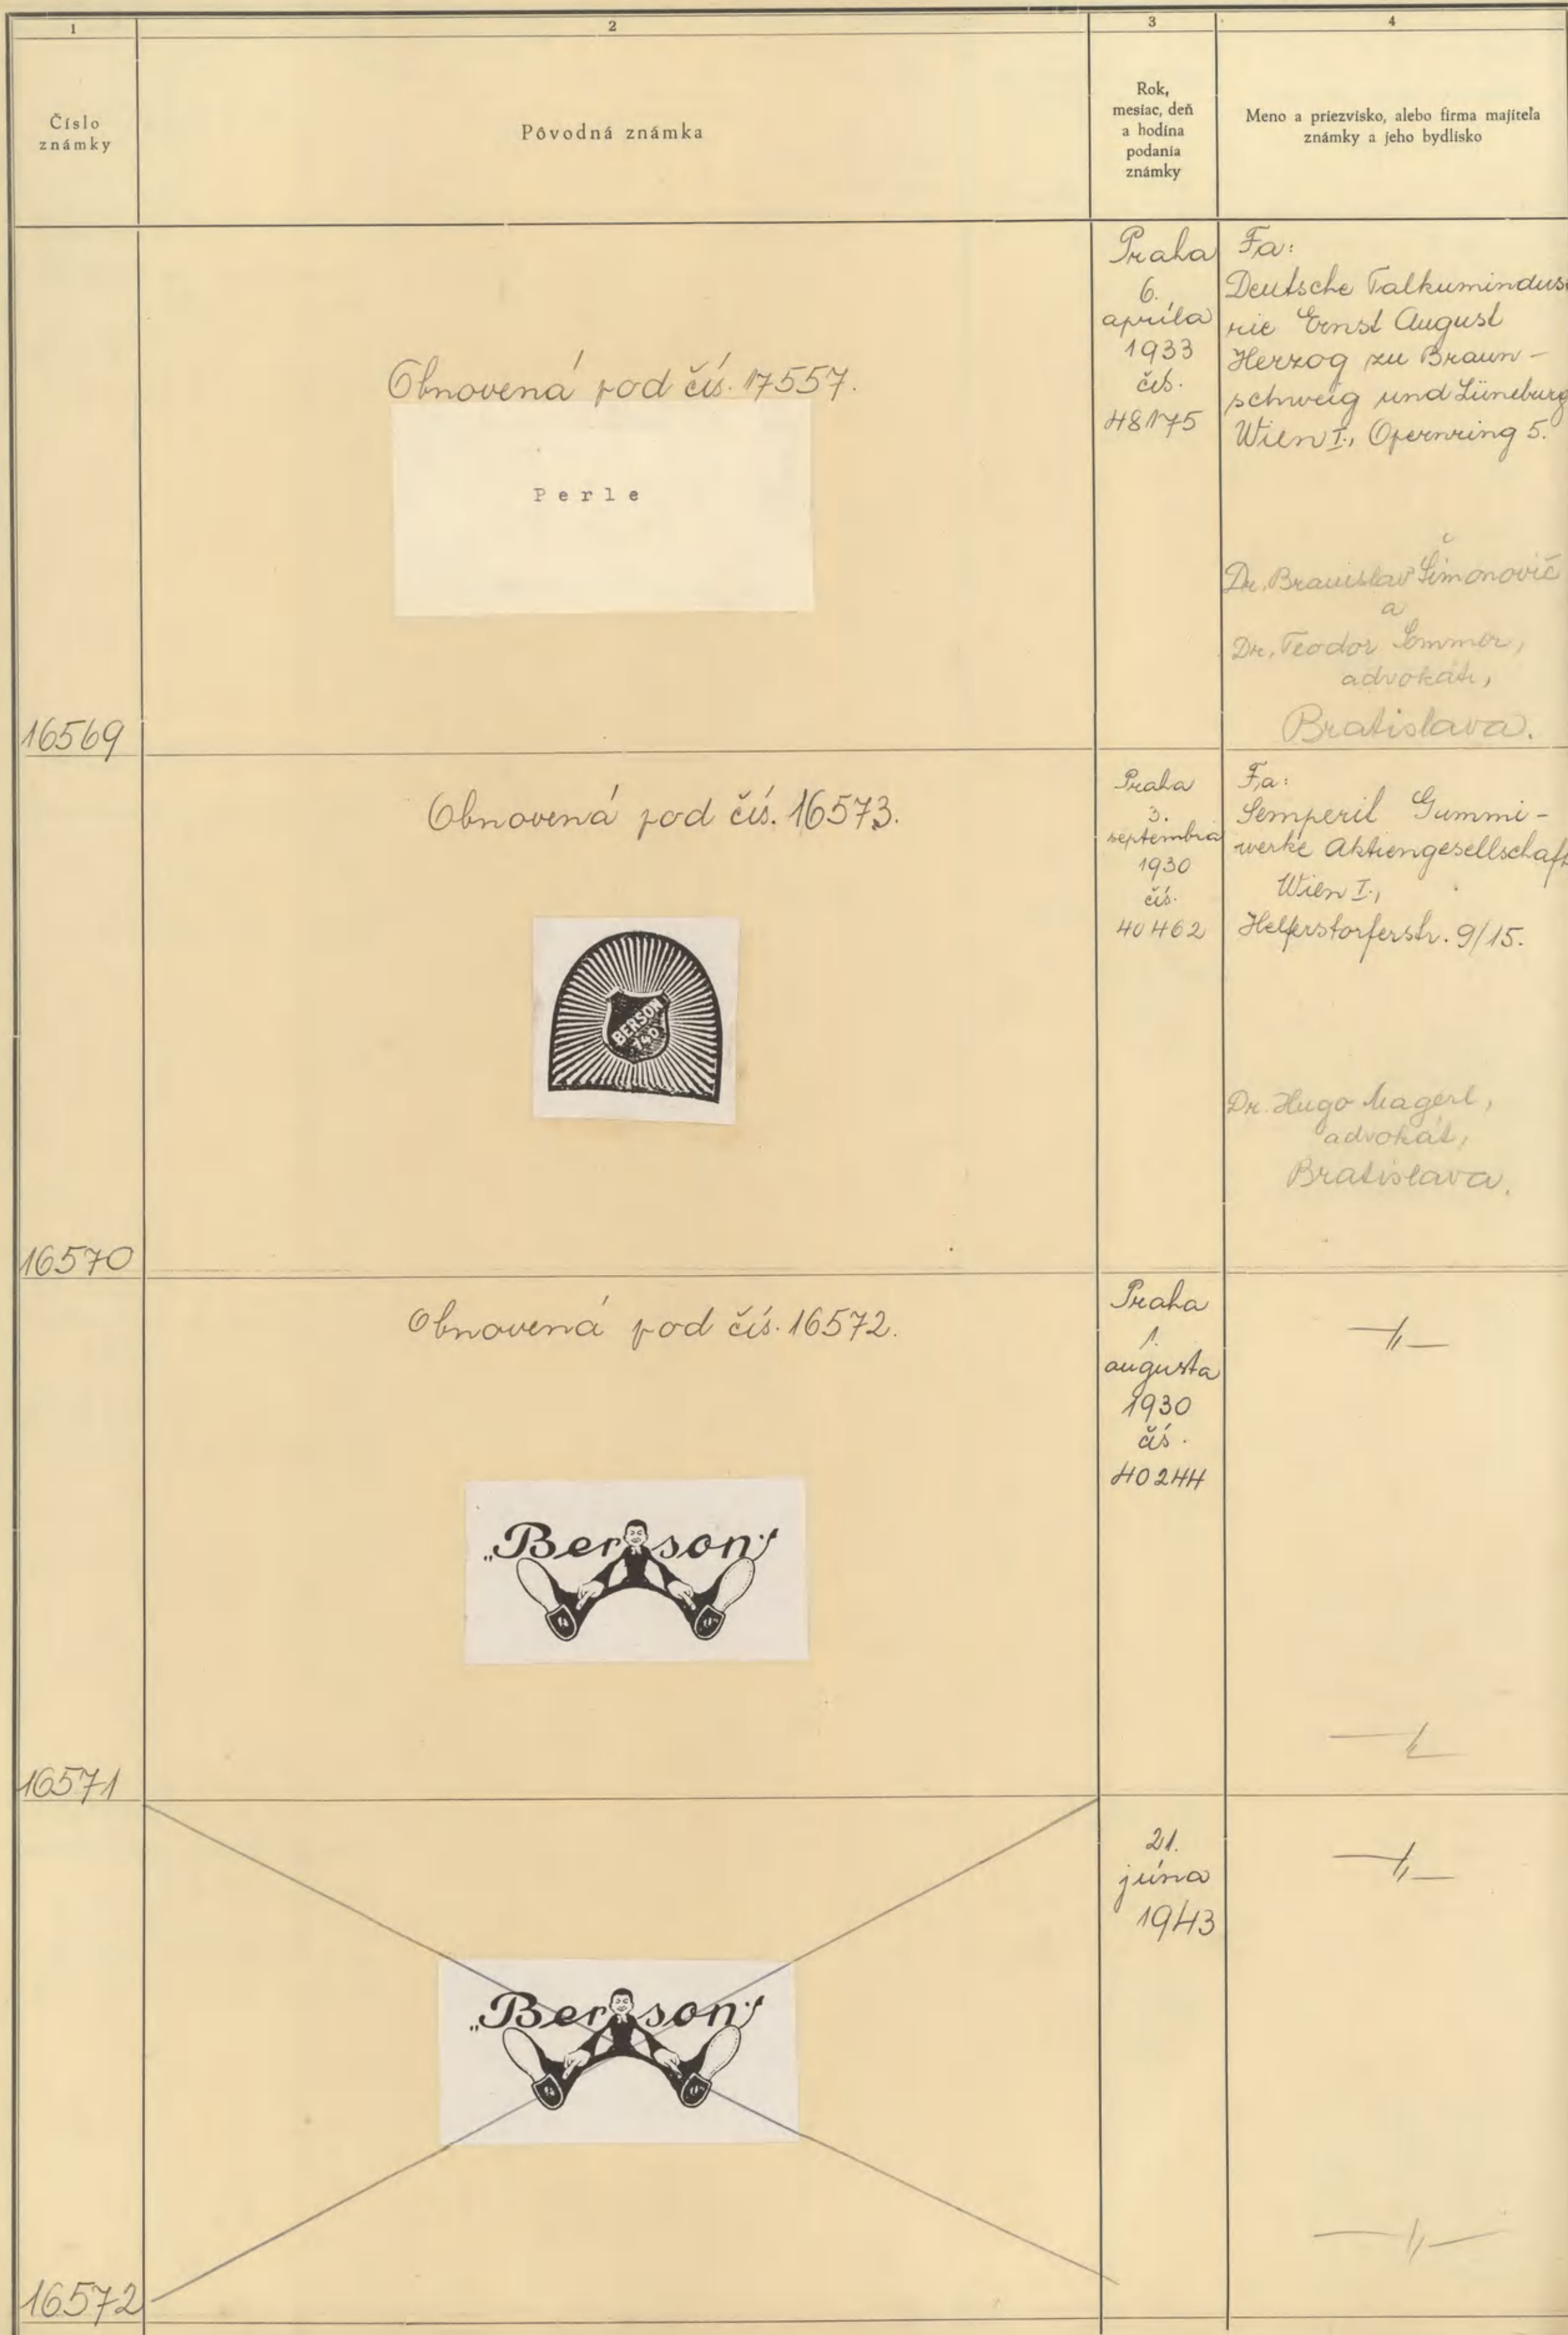 1
2
3
4
Číslo
známky
Pôvodná známka
Rok,
mesiac, deň
a hodina
podania
známky
Meno a priezvisko, alebo firma majiteľa
známky a jeho bydlisko
16569
Obnovená pod čís. 17557.
Perle
Praha
6.
apríla
1933
čís.
48175
Fa:
Deutsche Talkumindus
rie Ernst August
Herzog zu Braun-
schweig und Lüneburg
Wien I., Opernring 5.
Dr. Branislav Šimonovič
a
Dr. Teodor Sommer,
advokáti,
Bratislava.
16570
Obnovená pod čís. 16573.
BERSON
740
Praha
3.
septembra
1930
čís.
40462
Fa:
Semperit Gummi-
werke Aktiengesellschaft
Wien I.,
Helferstorferstr. 9/15.
Dr. Hugo Magerl,
advokát,
Bratislava.
16571
Obnovená pod čís. 16572.
„Berson"
Praha
1.
augusta
1930
čís.
40244
—〃—
—〃—
16572
„Berson"
21.
júna
1943
—〃—
—〃—